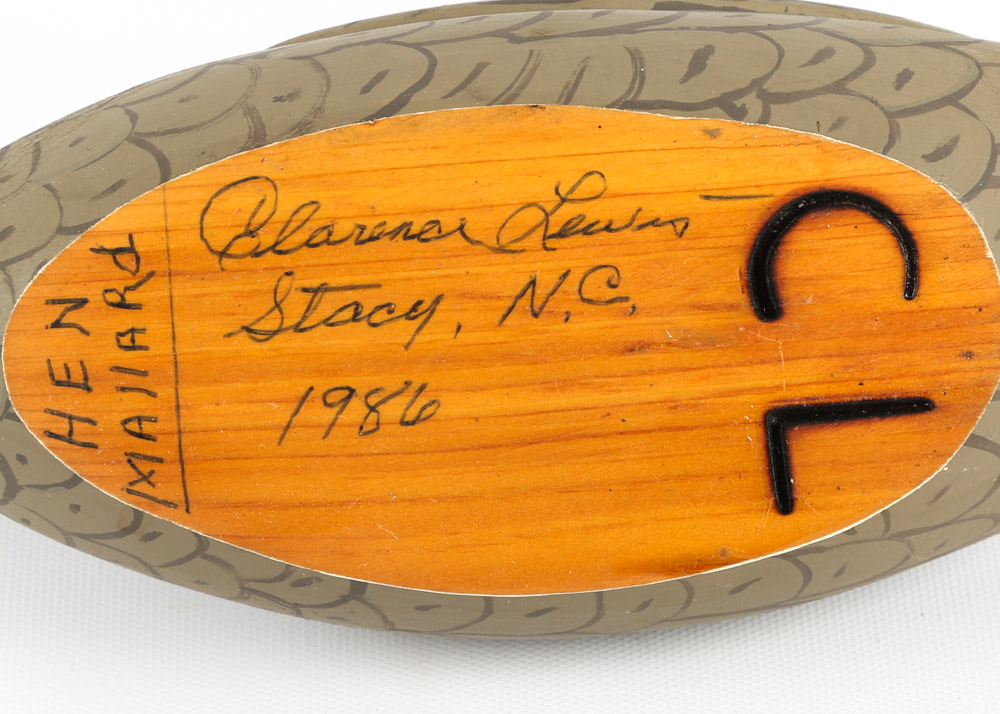 Clarence Lewis
Stacy, N.C.
1986
HEN
MALLARd
C L